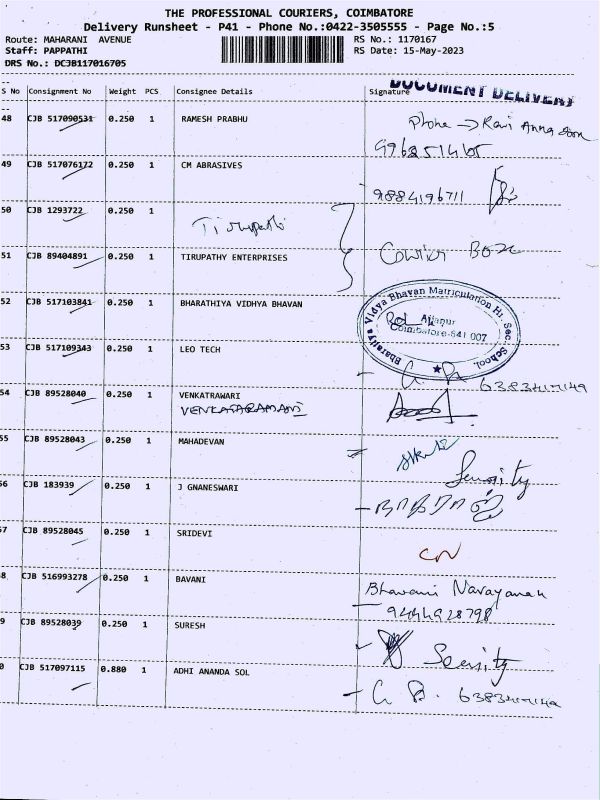 THE PROFESSIONAL COURIERS, COIMBATORE
Delivery Runsheet - P41 - Phone No.:0422-3505555 - Page No.:5
Route: MAHARANI AVENUE
RS No.: 1170167
Staff: PAPPATHI
RS Date: 15-May-2023
DRS No.: DCJB117016705
DOCUMENT DELIVERY
S No Consignment No Weight PCS Consignee Details Signature
48 CJB 517090531 0.250 1 RAMESH PRABHU Phone → Ravi Anna
49 CJB 517076172 0.250 1 CM ABRASIVES
9884196711
50 CJB 1293722 0.250 1 Tirupathi
51 CJB 89404891 0.250 1 TIRUPATHY ENTERPRISES Courier Box
52 CJB 517103841 0.250 1 BHARATHIYA VIDHYA BHAVAN
Bharatiya Vidya Bhavan Matriculation Hr. Sec. School.
Ajjanur
Coimbatore-641 007
53 CJB 517109343 0.250 1 LEO TECH
54 CJB 89528040 0.250 1 VENKATRAWARI
VENKATARAMANI
55 CJB 89528043 0.250 1 MAHADEVAN
56 CJB 183939 0.250 1 J GNANESWARI
57 CJB 89528045 0.250 1 SRIDEVI
8 CJB 516993278 0.250 1 BAVANI Bhavani Narayanan
9444928798
9 CJB 89528039 0.250 1 SURESH
0 CJB 517097115 0.880 1 ADHI ANANDA SOL